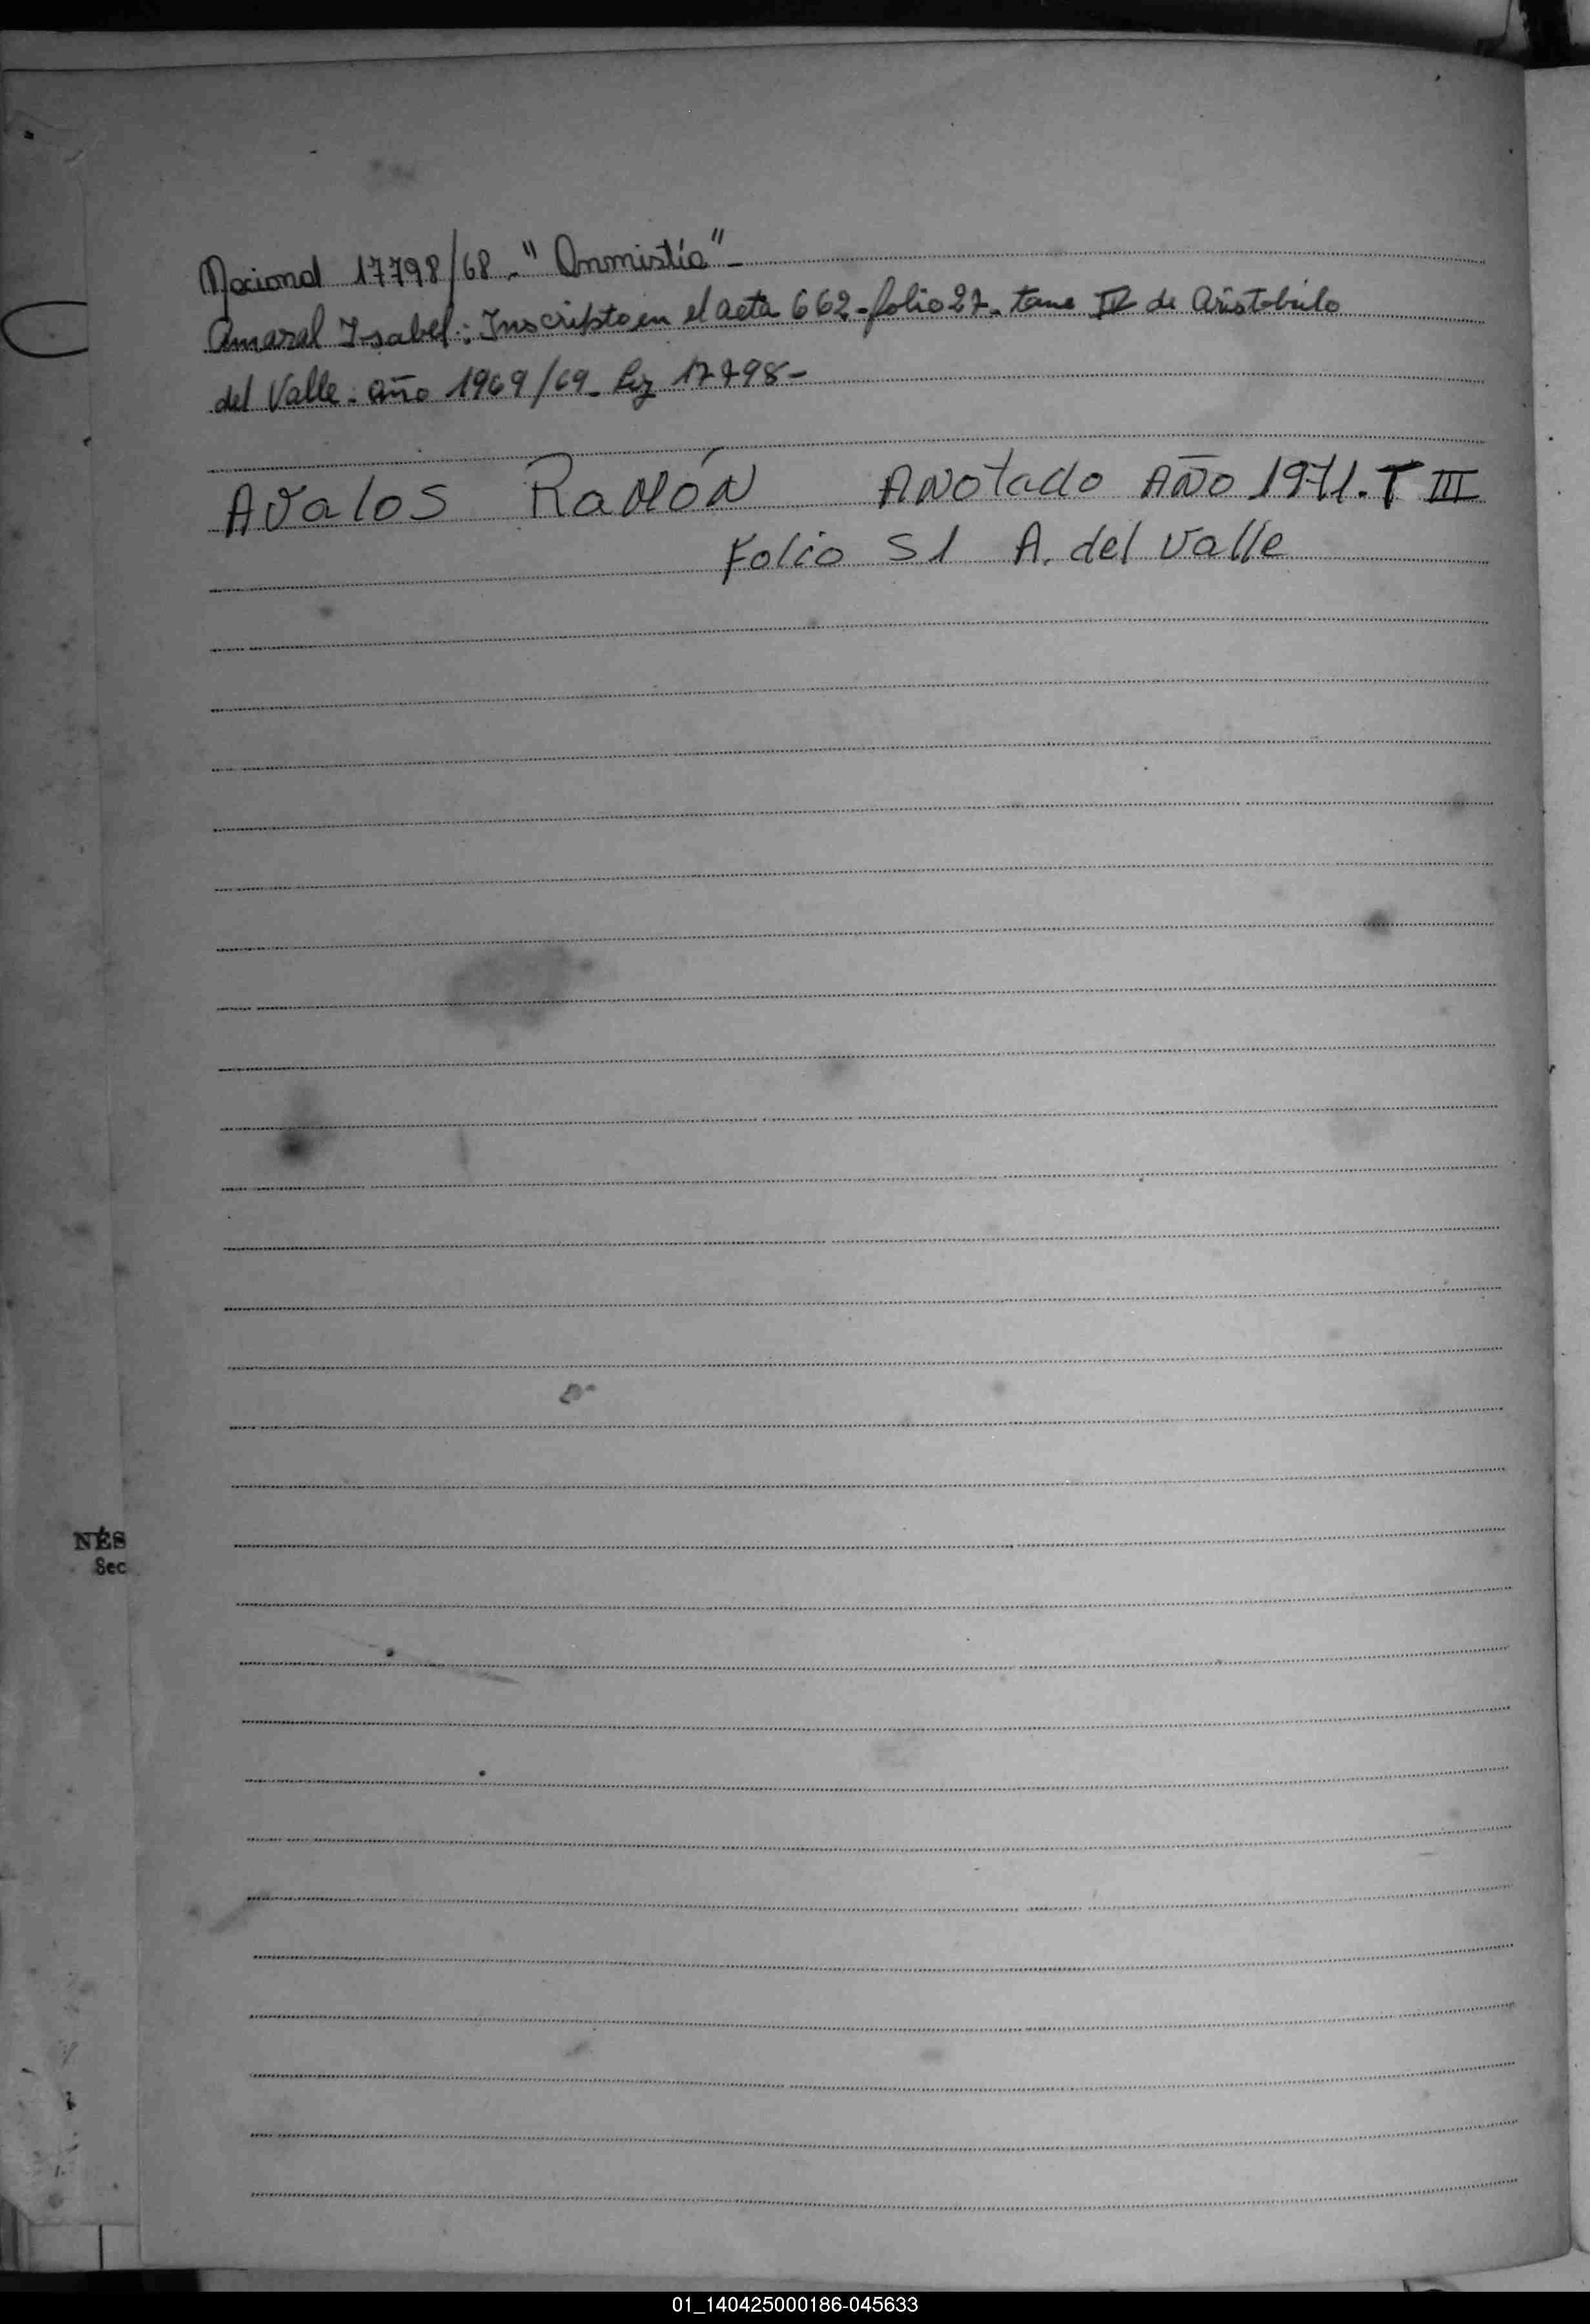 Nacional 17798/68 - "Anmistía" -
Amaral Isabel: Inscripto en el acta 662 - folio 27 - tomo IV de Aristobulo
del Valle - año 1969/69 - Ley 17798 -
Avalos Ramón Anotado Año 1971. T III
Folio 51 A. del Valle
NÉS
Sec
01_140425000186-045633